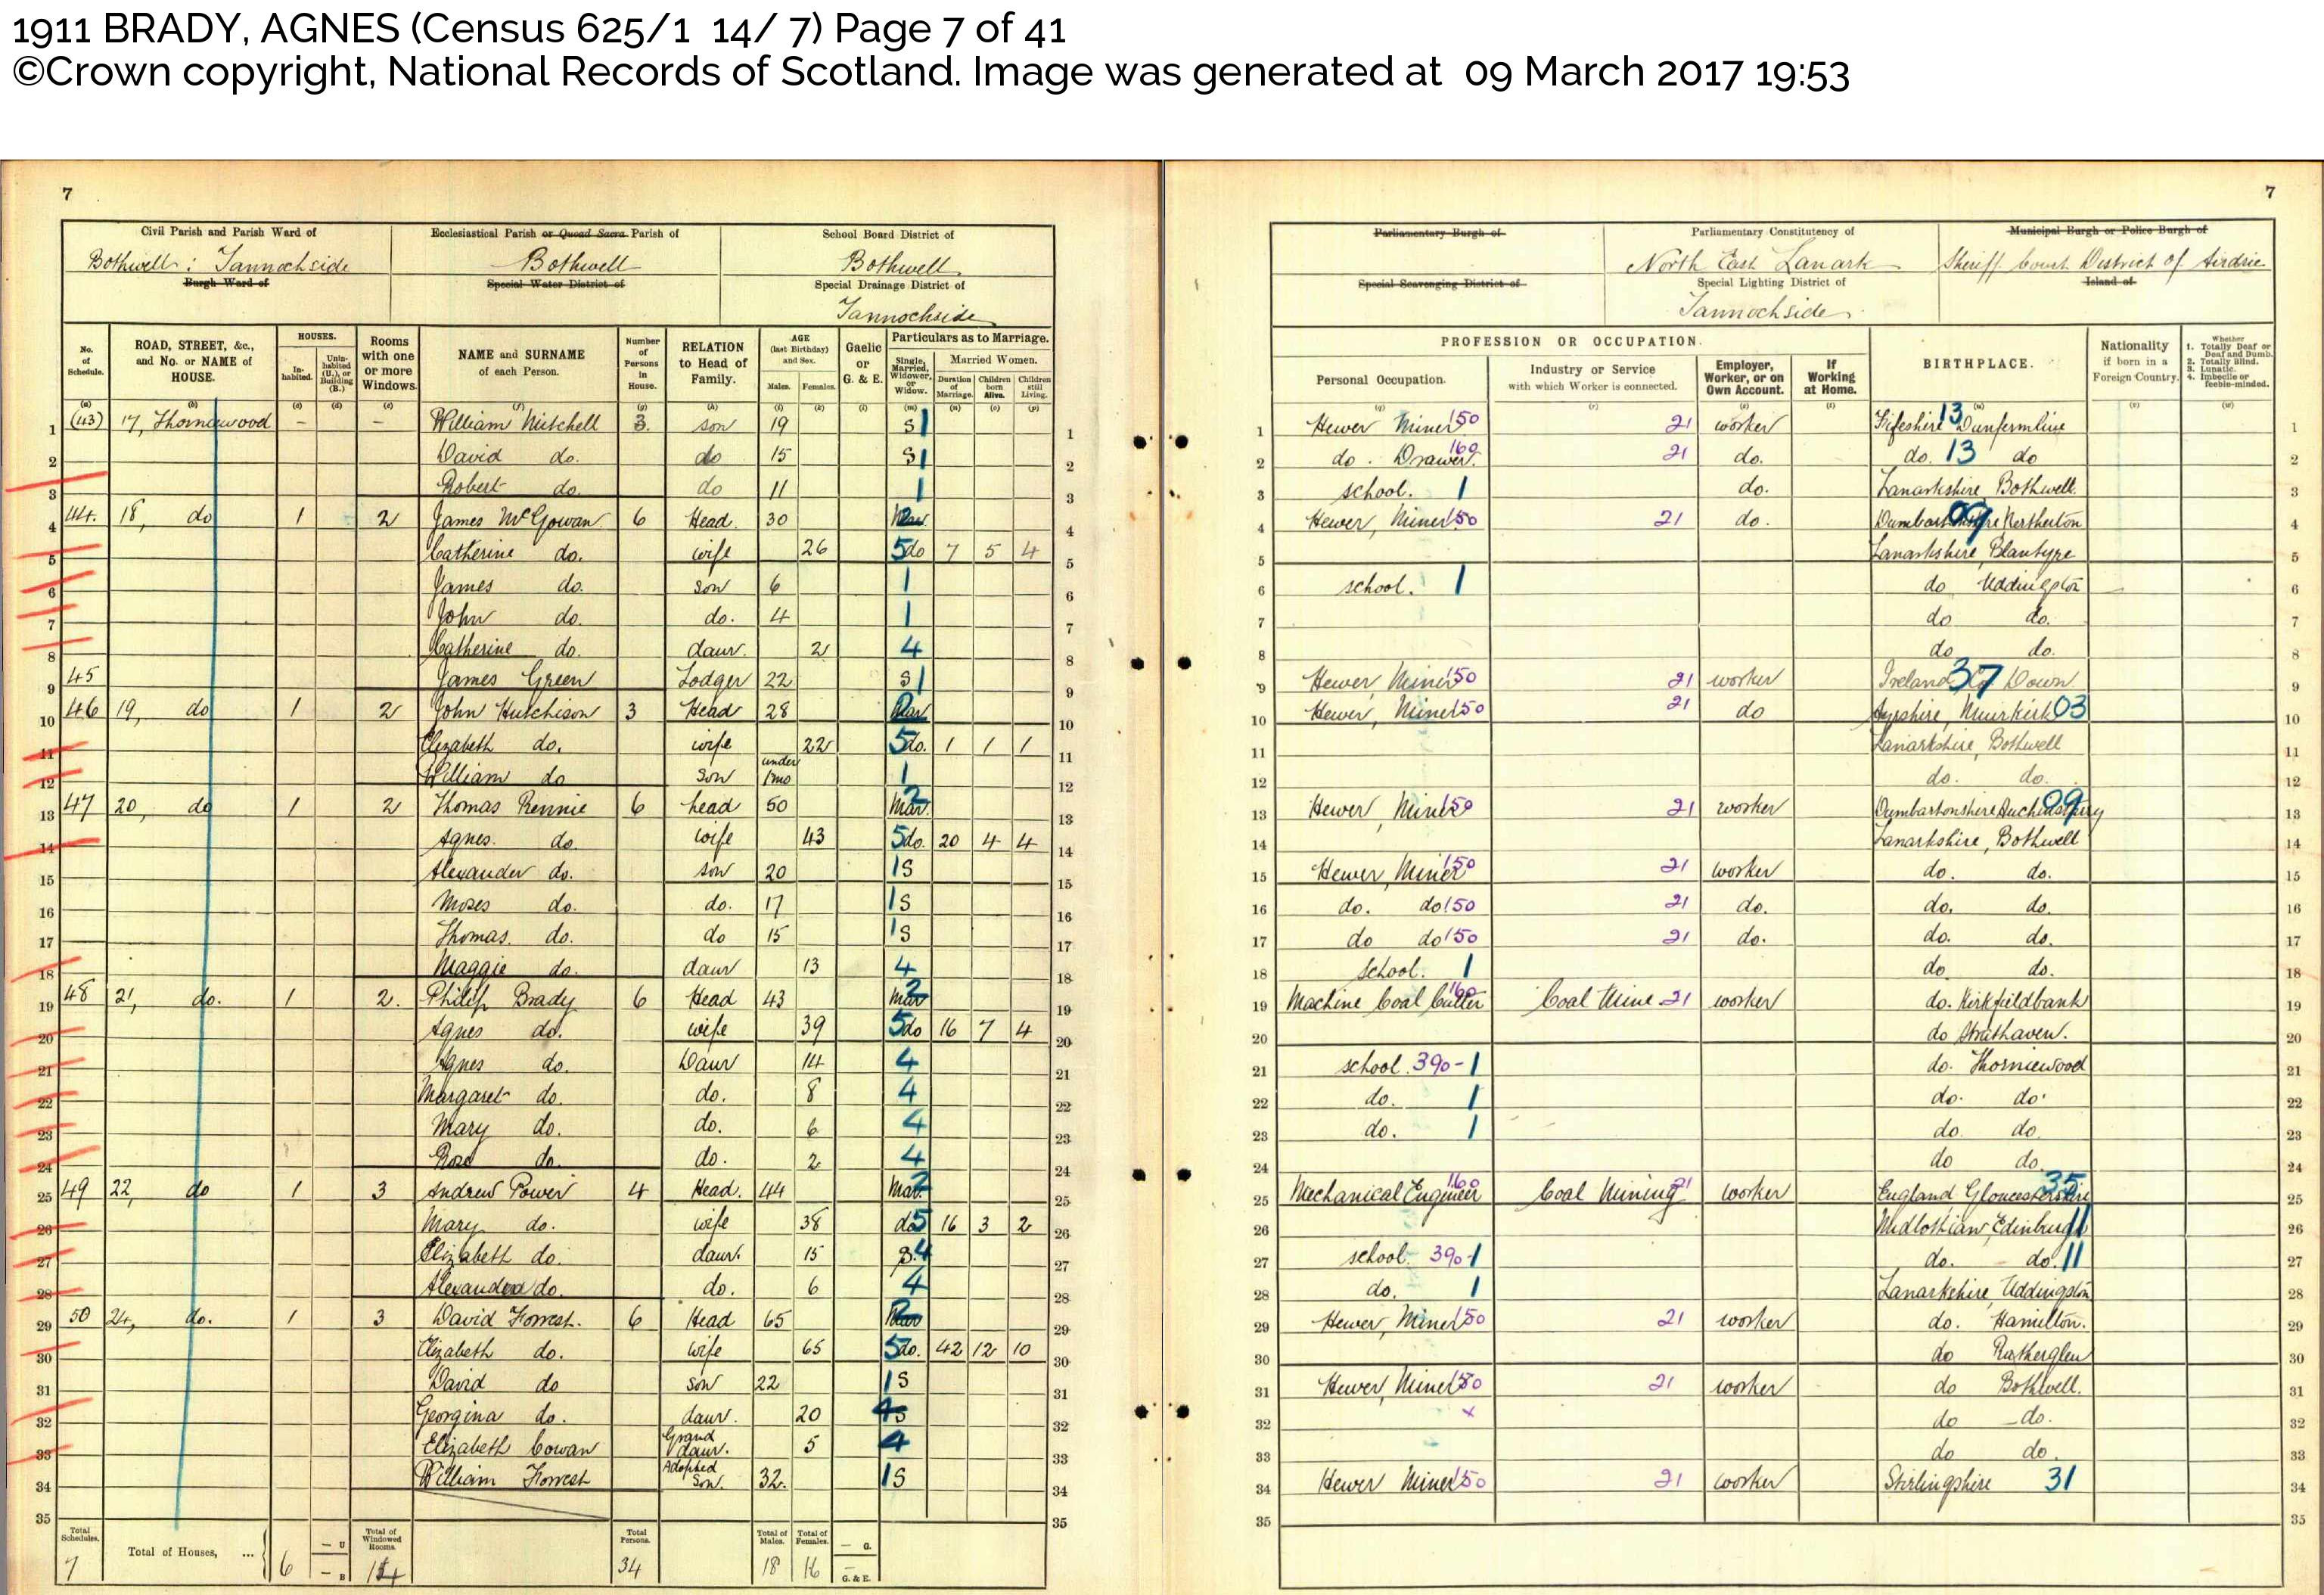 1911 BRADY, AGNES (Census 625/1 14/ 7) Page 7 of 41
©Crown copyright, National Records of Scotland. Image was generated at 09 March 2017 19:53
7
7
Civil Parish and Parish Ward of Ecclesiastical Parish or Quoad Sacra Parish of School Board District of
Bothwell: Tannochside Bothwell Bothwell
Burgh Ward of Special Water District of Special Drainage District of
Tannochside
Parliamentary Burgh of Parliamentary Constitutency of Municipal Burgh or Police Burgh of
North East Lanark Sheriff Court District of Airdrie
Special Scavenging District of Special Lighting District of Island of
Tannochside
No. of Schedule. ROAD, STREET, &c., and No. or NAME of HOUSE. HOUSES. Inhabited. Uninhabited (U.), or Building (B.) Rooms with one or more Windows. NAME and SURNAME of each Person. Number of Persons in House. RELATION to Head of Family. AGE (last Birthday) and Sex. Males. Females. Gaelic or G. & E. Particulars as to Marriage. Single, Married, Widower, or Widow. Married Women. Duration of Marriage. Children born Alive. Children still Living.
PROFESSION OR OCCUPATION. Personal Occupation. Industry or Service with which Worker is connected. Employer, Worker, or on Own Account. If Working at Home. BIRTHPLACE. Nationality if born in a Foreign Country. Whether 1. Totally Deaf or Deaf and Dumb. 2. Totally Blind. 3. Lunatic. 4. Imbecile or feeble-minded.
1 (43) 17, Thorniewood - - William Mitchell 3. son 19 S 1 1 Hewer Miner 150 21 worker Fifeshire 13 Dunfermline 1
2 David do. do 15 S 1 2 do. Drawer. 160 21 do. do. 13 do 2
3 Robert do. do 11 1 3 school. 1 do. Lanarkshire, Bothwell. 3
4 44. 18, do 1 2 James McGowan 6 Head. 30 Mar 4 Hewer, Miner 150 21 do. 09 4
5 Catherine do. wife 26 5 do 7 5 4 5 Lanarkshire, Blantyre 5
6 James do. son 6 1 6 school. 1 do Uddingston 6
7 John do. do. 4 1 7 do do. 7
8 Catherine do. daur. 2 4 8 do do. 8
9 45 James Green Lodger 22 S 1 9 Hewer, Miner 150 21 worker Ireland 37 Co. Down 9
10 46 19, do 1 2 John Hutchison 3 Head 28 Mar 10 Hewer, Miner 150 21 do Ayrshire, Muirkirk 03 10
11 Elizabeth do. wife 22 5 do. 1 1 1 11 Lanarkshire, Bothwell 11
12 William do son under 1mo 1 12 do. do. 12
13 47 20, do 1 2 Thomas Rennie 6 head 50 2 Mar. 13 Hewer, Miner 150 21 worker Dumbartonshire 09 13
14 Agnes. do. wife 43 5 do. 20 4 4 14 Lanarkshire, Bothwell 14
15 Alexander do. son 20 1 S 15 Hewer, Miner 150 21 worker do. do. 15
16 Moses do. do. 17 1 S 16 do. do 150 21 do. do. do. 16
17 Thomas. do. do 15 1 S 17 do do 150 21 do. do. do. 17
18 Maggie do. daur 13 4 18 school. 1 do do. 18
19 48 21, do. 1 2. Philip Brady 6 Head 43 2 Mar 19 Machine Coal Cutter 160 Coal Mine 21 worker do. Kirkfieldbank 19
20 Agnes do. wife 39 5 do 16 7 4 20 do Strathaven. 20
21 Agnes do. Daur 14 4 21 school. 390 - 1 do. Thorniewood 21
22 Margaret do. do. 8 4 22 do. 1 do. do. 22
23 Mary do. do. 6 4 23 do. 1 do. do. 23
24 Rose do. do. 2 4 24 do do. 24
25 49 22, do 1 3 Andrew Power 4 Head. 44 2 Mar. 25 Mechanical Engineer 160 Coal Mining 21 worker England Gloucestershire 35 25
26 Mary do. wife 38 do 5 16 3 2 26 Midlothian, Edinburgh 11 26
27 Elizabeth do. daur. 15 S. 4 27 school. 390 - 1 do. do. 11 27
28 do. do. 6 4 28 do. 1 Lanarkshire, Uddingston 28
29 50 24, do. 1 3 David Forrest. 6 Head 65 Mar 29 Hewer, Miner 150 21 worker do. Hamilton. 29
30 Elizabeth do. wife 65 5 do. 42 12 10 30 do Rutherglen 30
31 David do son 22 1 S 31 Hewer, Miner 150 21 worker do Bothwell. 31
32 Georgina do. daur. 20 4 S 32 x do do. 32
33 Elizabeth Cowan Grand daur. 5 4 33 do do. 33
34 William Forrest Adopted Son. 32. 1 S 34 Hewer Miner 150 21 worker Stirlingshire 31 34
35 35 35 35
Total Schedules. Total of Houses, ... 6 - U - B Total of Windowed Rooms. 14 Total Persons. 34 Total of Males. 18 Total of Females. 16 - G. - G. & E.
7